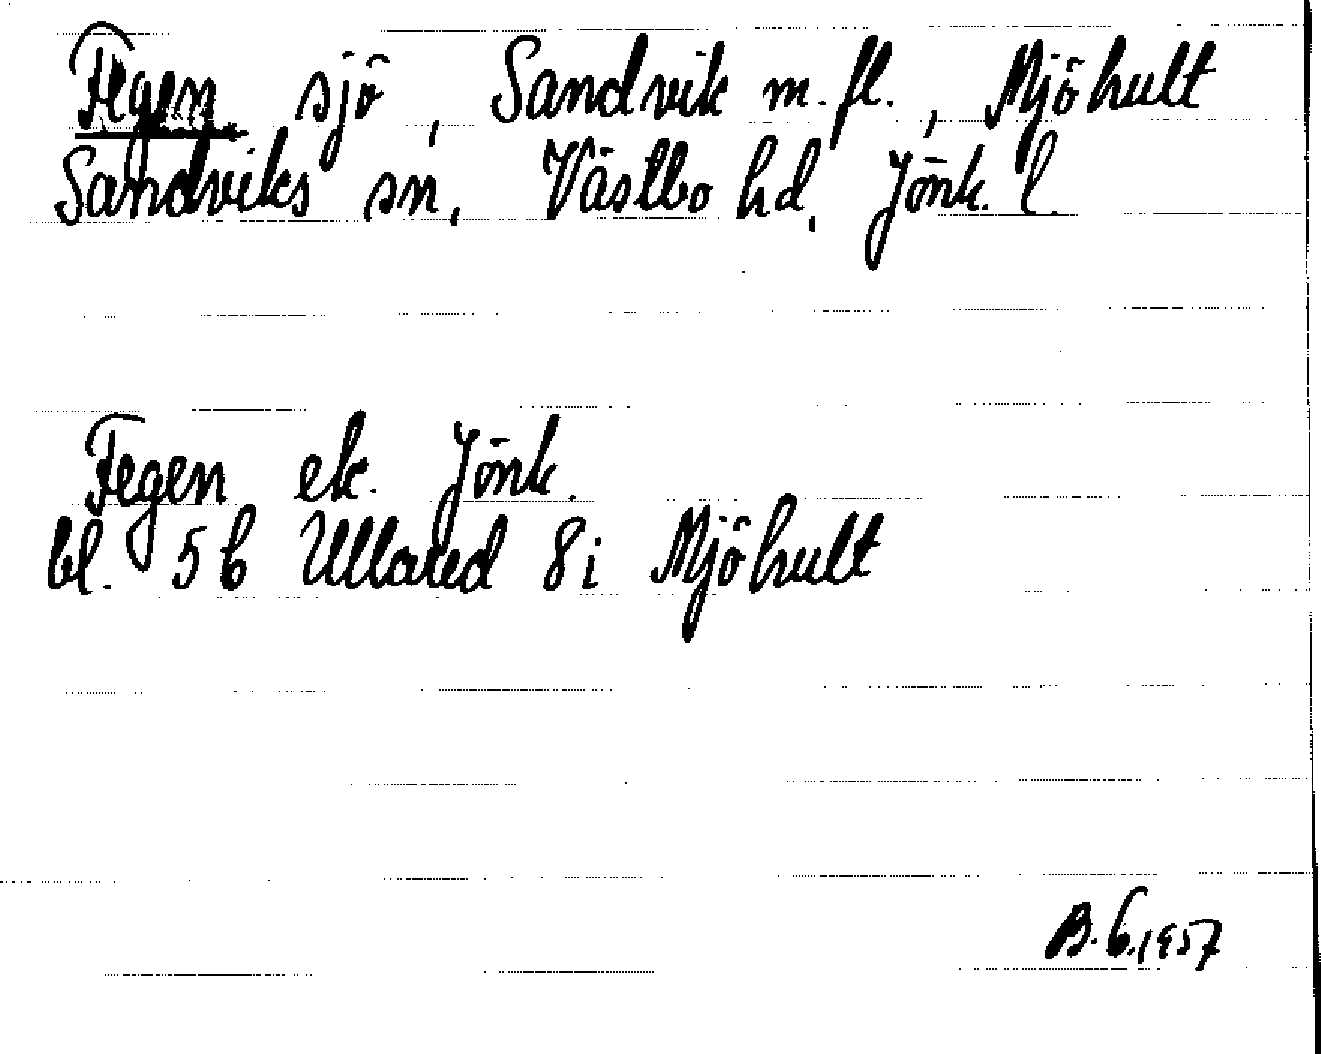 Fegen, sjö, Sandvik m.fl., Mjöhult
Sandviks sn, Västbo hd, Jönk. l.
Fegen ek. Jönk.
bl. 5b Ullared 8i Mjöhult
B.G.1957